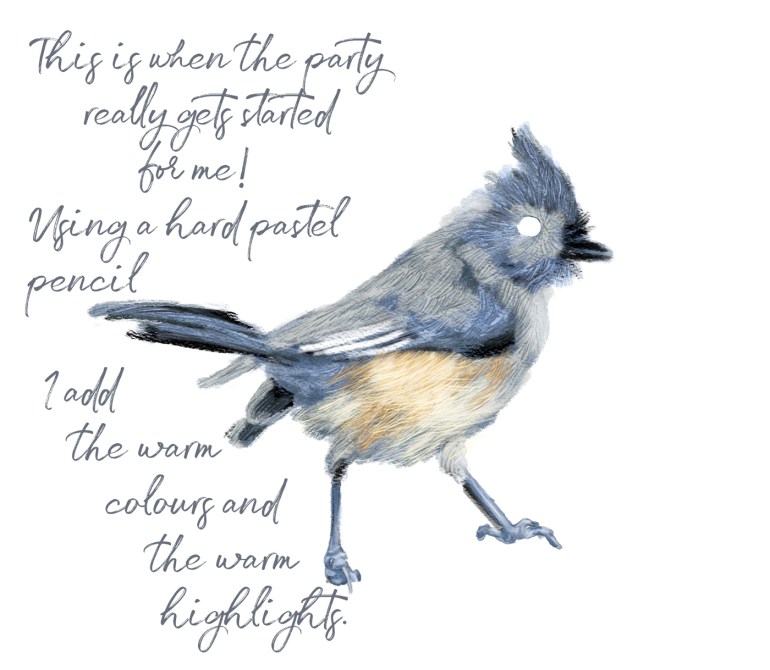 This is when the party
really gets started
for me!
Using a hard pastel
pencil
I add
the warm
colours and
the warm
highlights.